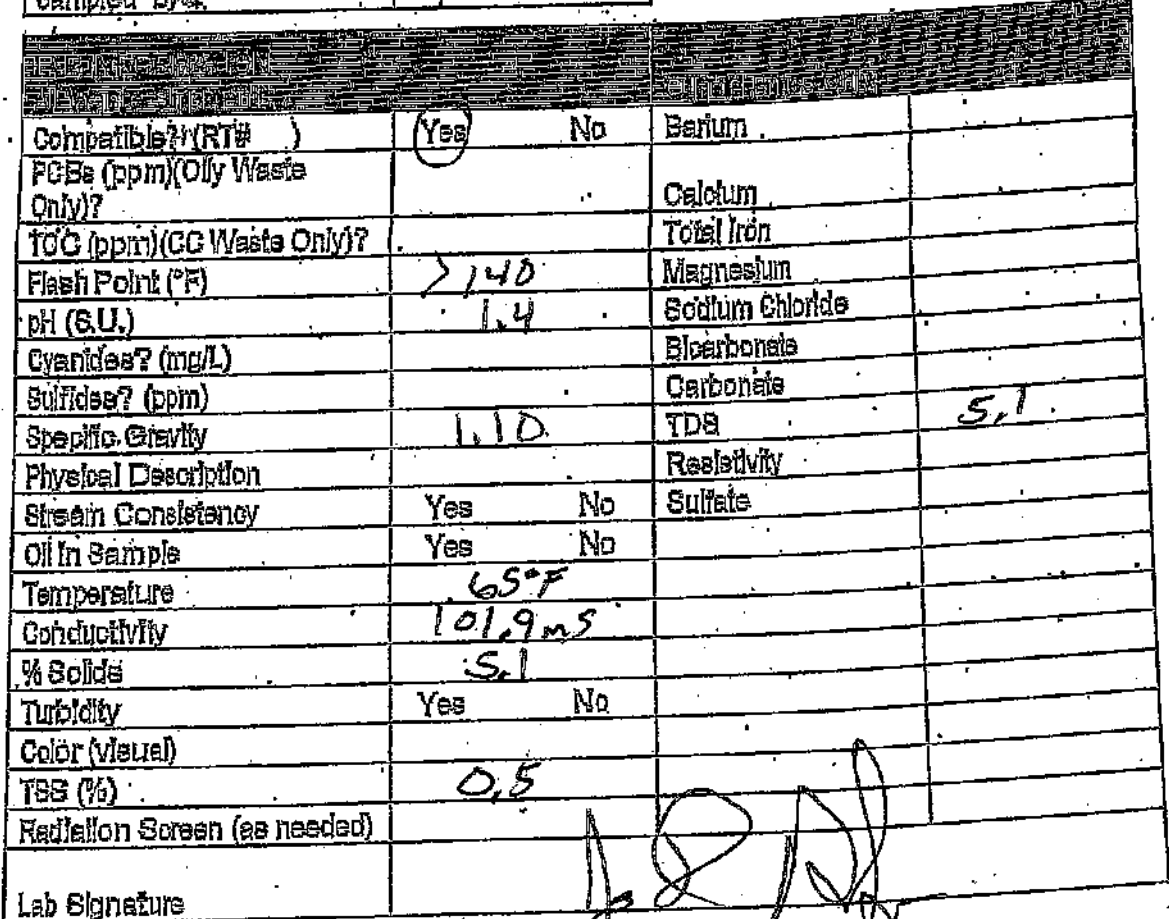 Compatible? (RT# ) Yes No Barium
PCBs (ppm)(Oily Waste
Only)? Calcium
TOC (ppm)(CC Waste Only)? Total Iron
Flash Point (°F) >140 Magnesium
pH (S.U.) 1.4 Sodium Chloride
Cyanides? (mg/L) Bicarbonate
Sulfides? (ppm) Carbonate
Specific Gravity 1.10 TDS 5.1
Physical Description Resistivity
Stream Consistency Yes No Sulfate
Oil In Sample Yes No
Temperature 65°F
Conductivity 101.9 mS
% Solids 5.1
Turbidity Yes No
Color (visual)
TSS (%) 0.5
Radiation Screen (as needed)
Lab Signature